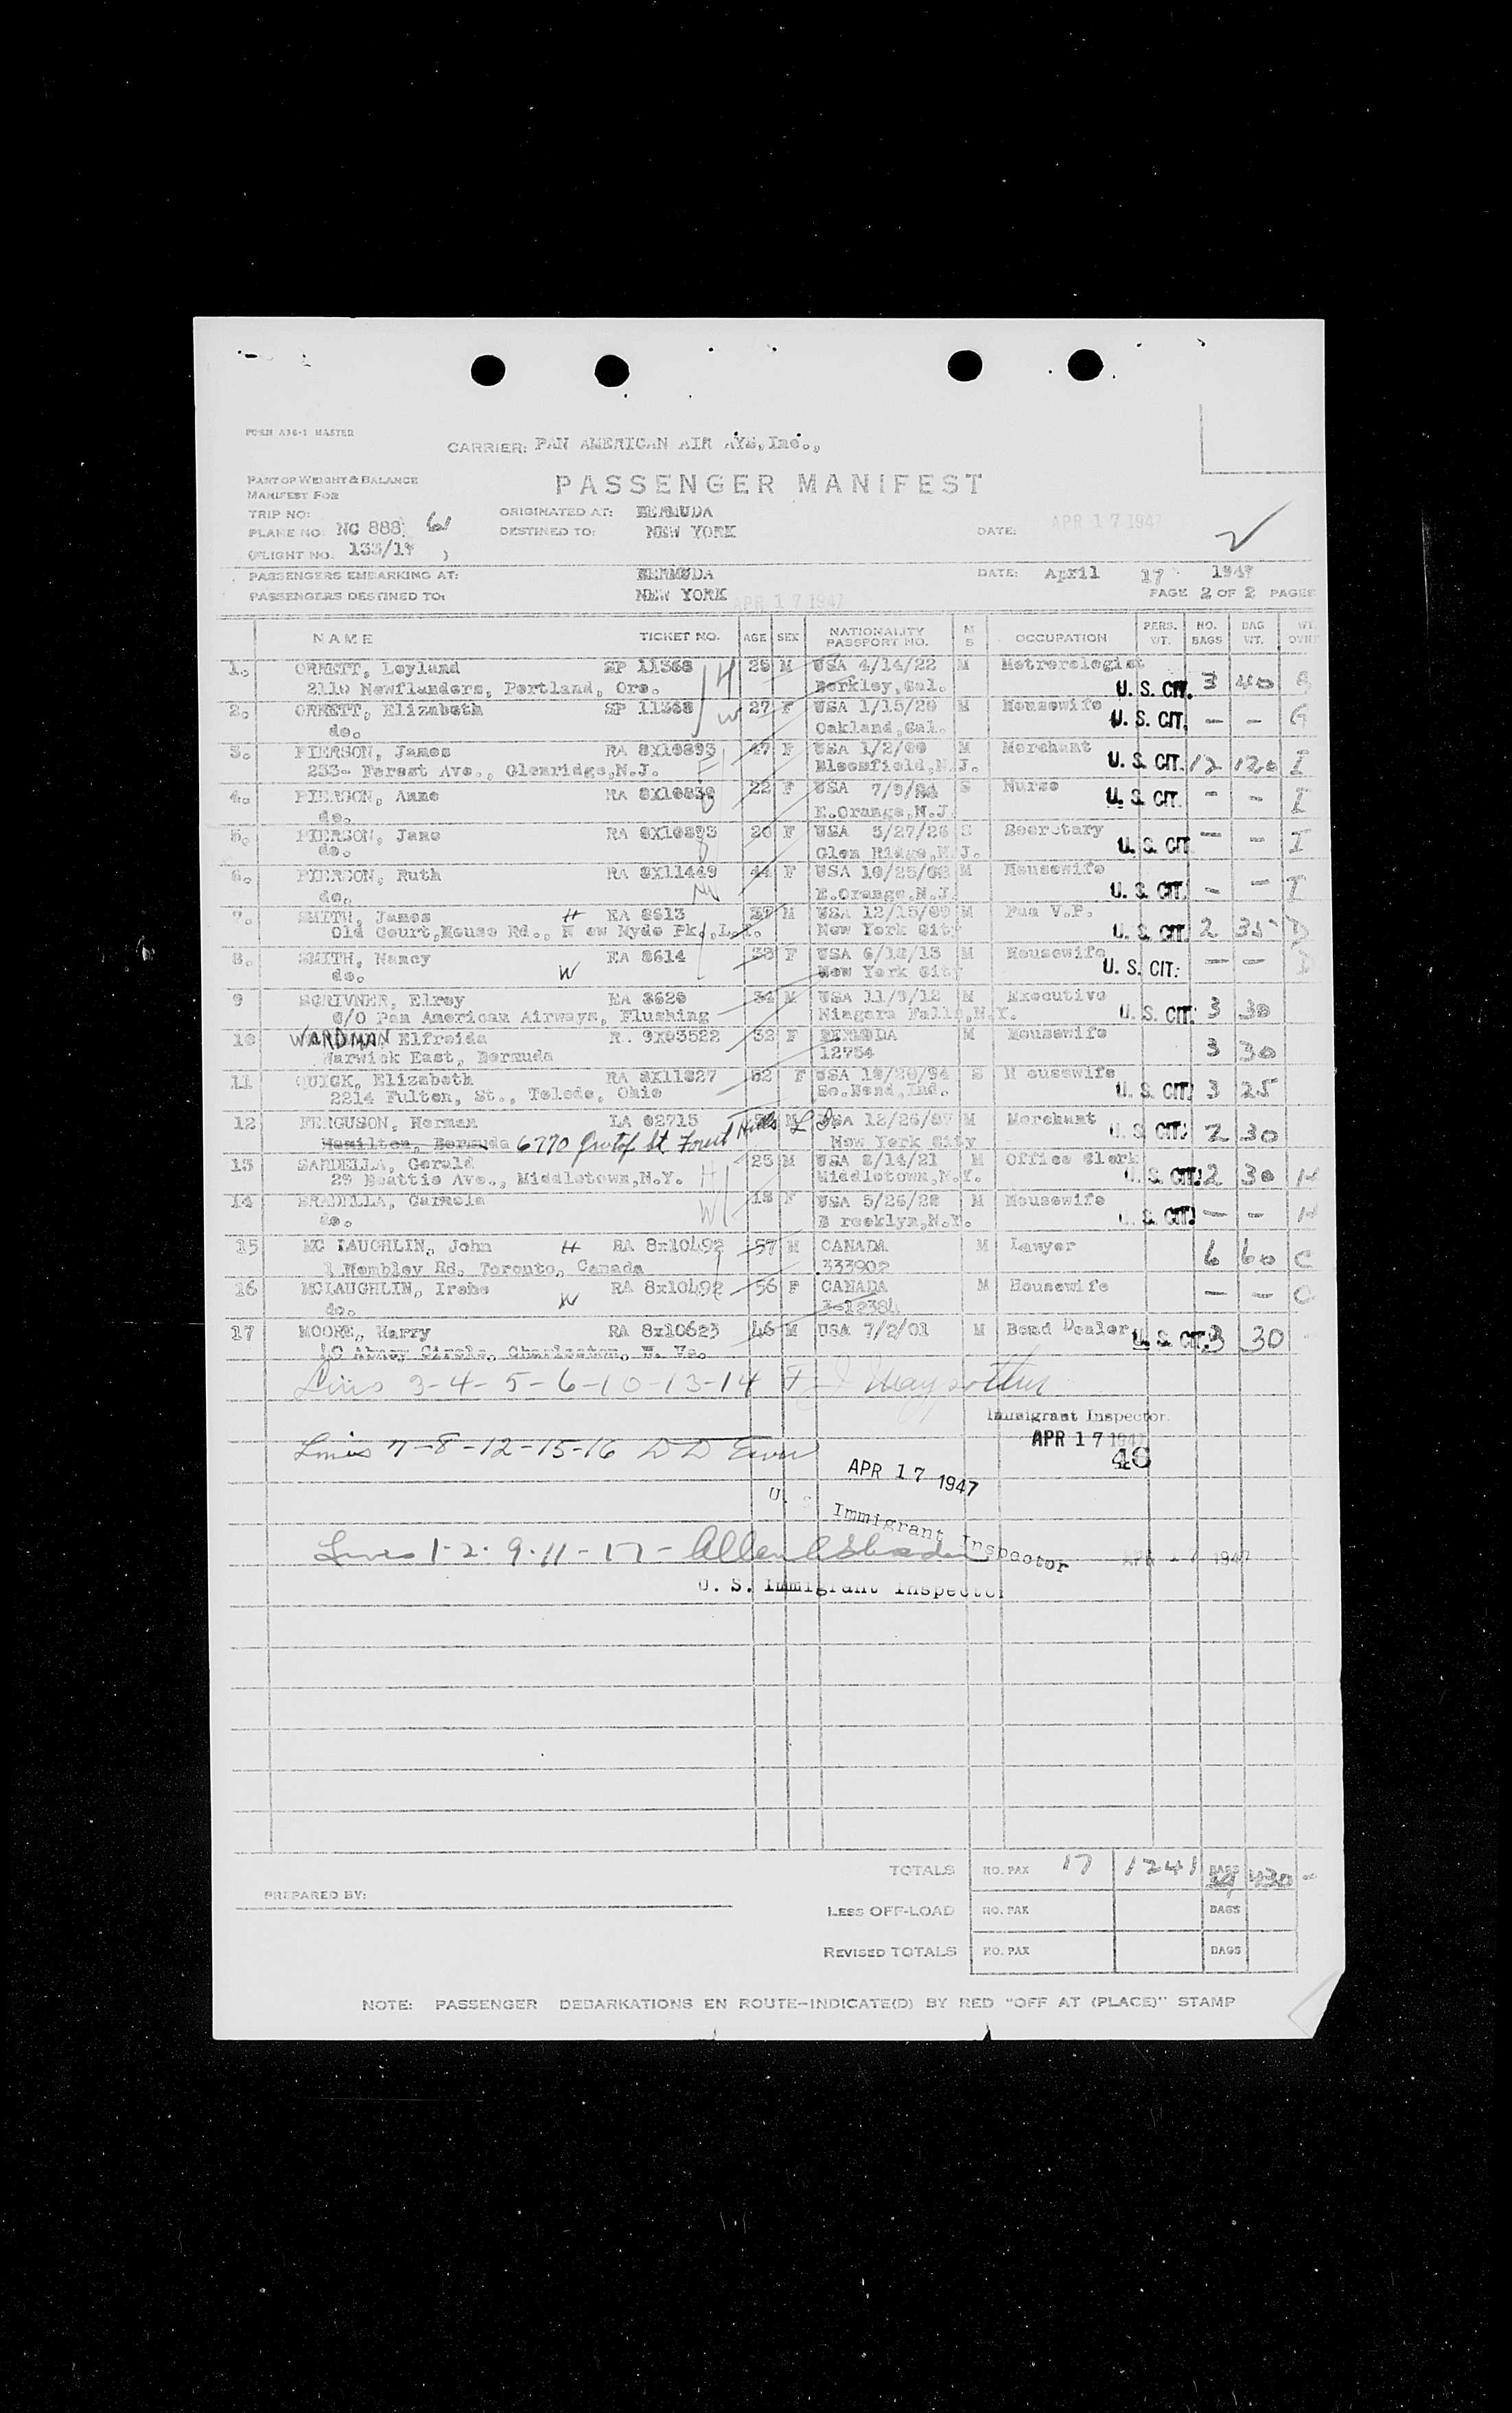 FORM A36-1 MASTER
CARRIER: PAN AMERICAN AIR AYS, Inc.,
PART OF WEIGHT & BALANCE
MANIFEST FOR
PASSENGER MANIFEST
TRIP NO: ORIGINATED AT: BERMUDA
PLANE NO: NC 888 DESTINED TO: NEW YORK DATE: APR 17 1947
(FLIGHT NO. 133/17 )
PASSENGERS EMBARKING AT: BERMUDA DATE: April 17 1947
PASSENGERS DESTINED TO: NEW YORK APR 17 1947 PAGE 2 OF 2 PAGES
NAME TICKET NO. AGE SEX NATIONALITY PASSPORT NO. M S OCCUPATION PERS. WT. NO. BAGS BAG WT.
1. ORNETT, Leyland SP 11368 H 25 M USA 4/14/22 M Metrerologist
2110 Newflanders, Portland, Ore. Berkley, Cal. U. S. CIT. 3 40 G
2. ORNETT, Elizabeth SP 11368 W 27 F USA 1/15/20 M Housewife
do. Oakland, Cal. U. S. CIT. — — G
3. PIERSON, James RA 8X10893 47 F USA 1/2/00 M Merchant
253- Forest Ave., Glenridge, N.J. Bloomfield, N.J. U. S. CIT. 12 120 I
4. PIERSON, Anne 22 F USA 7/9/24 S Nurse
do. E.Orange, N.J. U. S. CIT. - - I
5. PIERSON, Jane RA 8X10893 20 F USA 5/27/26 S Secretary
do. Glen Ridge, N.J. U. S. CIT. — — I
6. PIERSON, Ruth RA 8X11449 44 F USA M Housewife
do. E.Orange, N.J. U. S. CIT. - - I
7. SMITH, James H EA 8613 37 M USA 12/15/09 M Paa V.P.
Old Court, House Rd., N ew Hyde Pk., L.I. New York City U. S. CIT. 2 35 D
8. SMITH, Nancy W EA 8614 33 F USA 6/12/13 M Housewife
do. New York City U. S. CIT. — — D
9 SCRIVNER, Elroy EA 8620 34 M USA 11/9/12 M Executive
c/o Pan American Airways, Flushing Niagara Falls, N.Y. U. S. CIT. 3 30
10 WARDMAN Elfreida R. 9X03522 32 F BERMUDA M Housewife
Warwick East, Bermuda 12754 3 30
11 QUICK, Elizabeth RA 8X11827 52 F USA S H ousewife
2214 Fulton, St., Toledo, Ohio So.Bend, Ind. U. S. CIT. 3 25
12 FERGUSON, Herman LA 02715 M USA 12/26/87 M Merchant
Hamilton, Bermuda 6770 Groton St Forest Hills L I. New York City U. S. CIT. 2 30
13 SARDELLA, Gerald H 25 M USA 8/14/21 M Office Clerk
29 Beattie Ave., Middletown, N.Y. Middletown, N.Y. U. S. CIT. 2 30 H
14 SRADELLA, Carmela W 18 F USA 5/26/28 M Housewife
do. B rooklyn, N.Y. U. S. CIT. — — H
15 MC LAUGHLIN, John H RA 8x10492 57 M CANADA M Lawyer
1 Wembley Rd. Toronto, Canada 333902 6 60 C
16 MCLAUGHLIN, Irene W RA 8x10492 56 F CANADA M Housewife
do. 3-12384 — — C
17 MOORE, Harry RA 8x10623 46 M USA 7/2/01 M Bond Dealer
10 Abney Circle, Charleston, W. Va. U. S. CIT. 3 30
Lines 3-4-5-6-10-13-14
Immigrant Inspector
APR 17 1947
48
Lines 7-8-12-15-16 D D
APR 17 1947
U. S. Immigrant Inspector
Lines 1-2-9-11-17- Allen 1947
U. S. Immigrant Inspector
TOTALS NO. PAX 17 1241 BAGS 39 430
PREPARED BY:
LESS OFF-LOAD NO. PAX BAGS
REVISED TOTALS NO. PAX BAGS
NOTE: PASSENGER DEBARKATIONS EN ROUTE-INDICATE(D) BY RED "OFF AT (PLACE)" STAMP